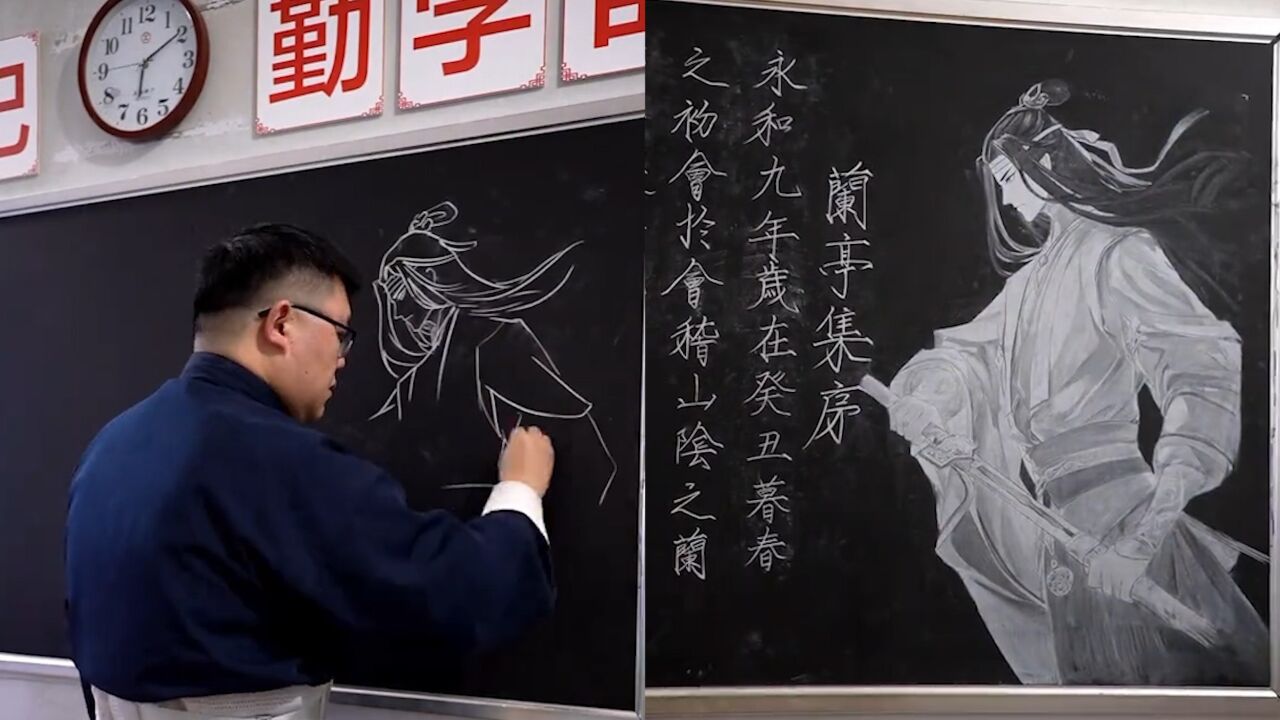 12 1 2 3 4 5 6 7 8 9 10 11
勤学
蘭亭集序
永和九年歲在癸丑暮春
之初會於會稽山陰之蘭